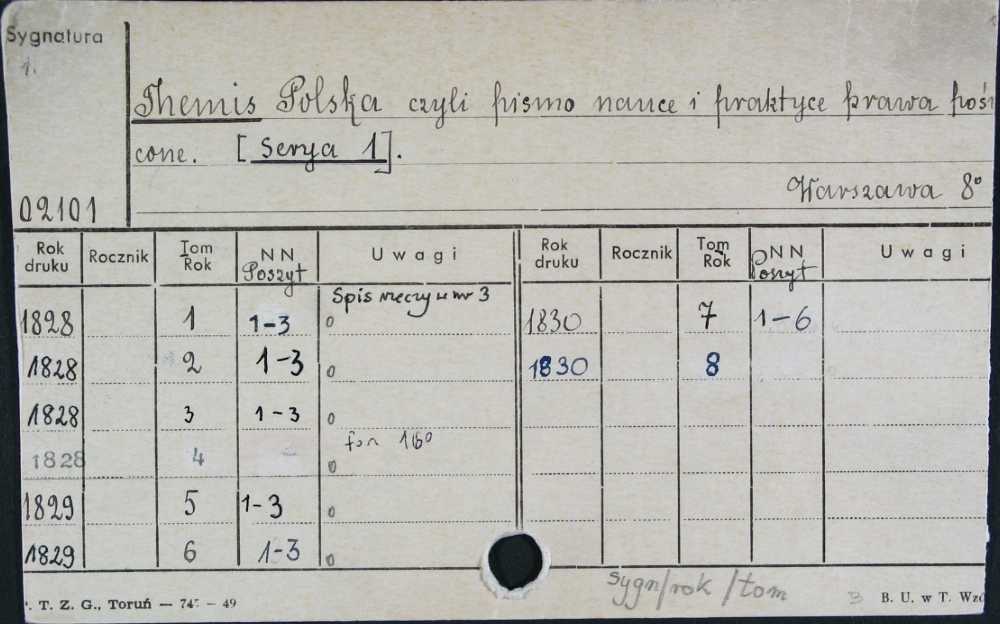 Sygnatura
1.
Themis Polska czyli pismo nauce i praktyce prawa poświ
cone. [Serya 1].
Warszawa 8°
02101
Rok druku Rocznik Tom Rok NN Poszyt Uwagi Rok druku Rocznik Tom Rok NN Poszyt Uwagi
Spis rzeczy w nr 3
1828 1 1-3 0 1830 7 1-6
1828 2 1-3 0 1830 8
1828 3 1-3 0
160
1828 4 - 0
1829 5 1-3 0
1829 6 1-3 0
sygn/rok /tom
T. Z. G., Toruń — 74 - 49 B. U. w T. Wzó